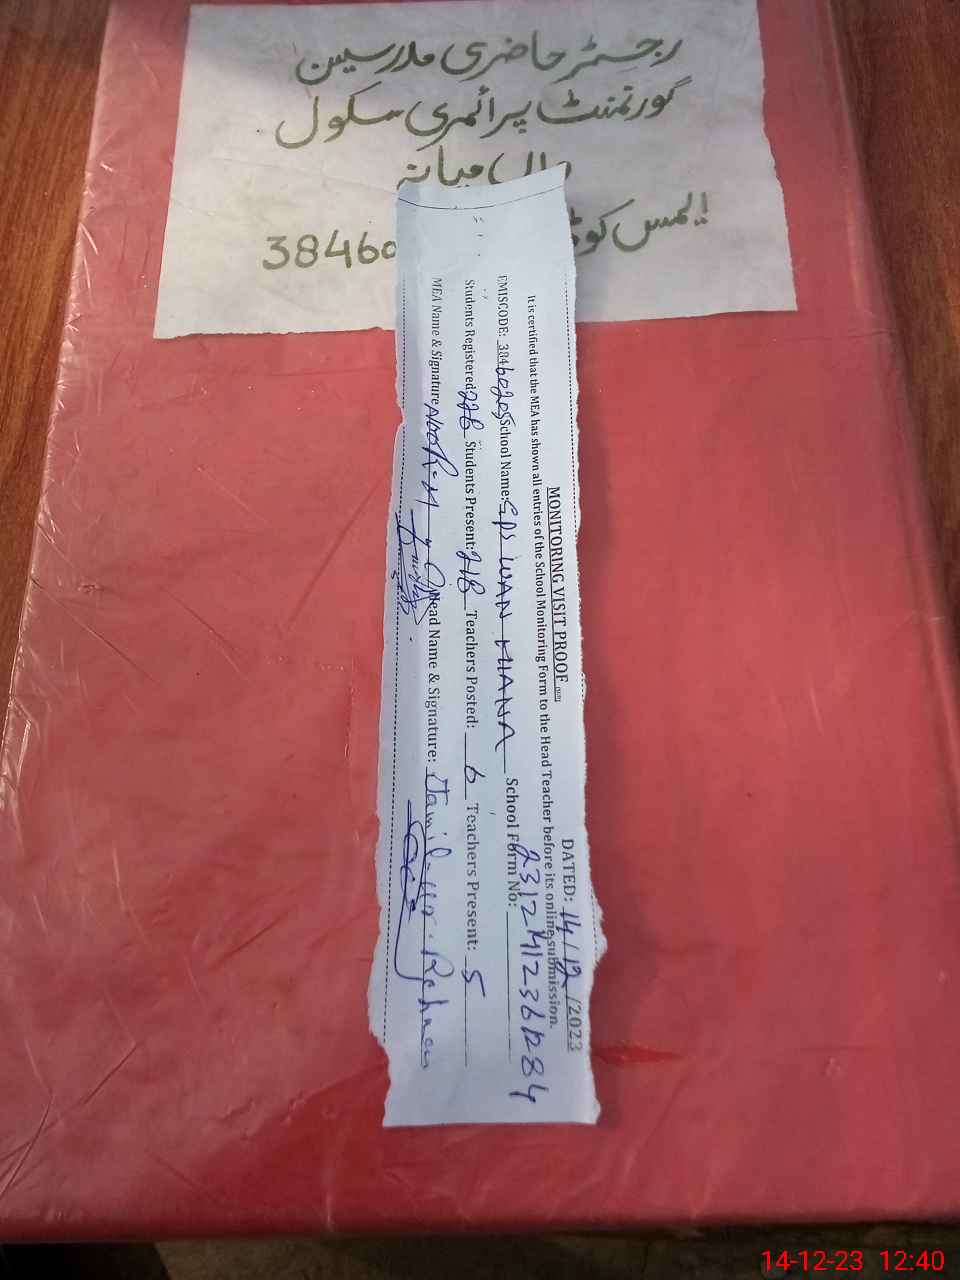 رجسٹر حاضری مدرسین
گورنمنٹ پرائمری سکول
وال میانہ
ایمس کوڈ 38460
MONITORING VISIT PROOF
DATED: 14/12/2023
It is certified that the MEA has shown all entries of the School Monitoring Form to the Head Teacher before its online submission.
EMISCODE: 38460205 School Name: GPS WAN MIANA School Form No:
Students Registered 228 Students Present: 218 Teachers Posted: 6 Teachers Present: 5
MEA Name & Signature NOOR-M Head Name & Signature: Jamil-ur-Rehman
14-12-23 12:40